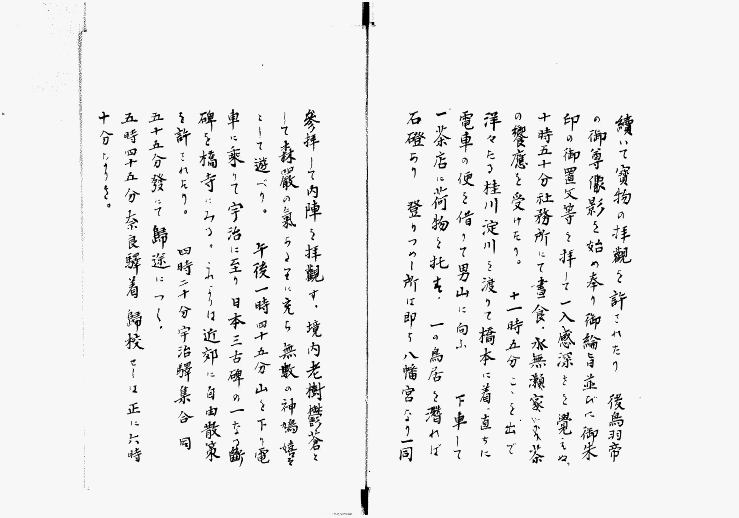 續いて寳物の拜觀を許されたり 後鳥羽帝
の御尊像影を始め奉り御綸旨並びに御朱
印の御置文等を拜して一入感深きを覺えぬ
十時五十分社務所にて晝食、水無瀬家より茶
の饗應を受けたり。 十一時五分こゝを出で
洋々たる桂川淀川を渡りて橋本に着・直ちに
電車の便を借りて男山に向ふ 下車して
一茶店に荷物を托す、一の鳥居を潛れば
石磴あり 登りつめし所は即ち八幡宮なり一同
參拜して內陣を拜觀す。境內老樹鬱蒼と
して森嚴の氣あたりに充ち 無數の神鳩嬉々
として遊べり。 午後一時四十五分山を下り電
車に乘りて宇治に至り 日本三古碑の一たる斷
碑を橋寺にみる。これよりは近郊に自由散策
を許されたり。 四時二十分宇治驛集合 同
五十五分發にて歸途につく。
五時四十五分奈良驛着 歸校せしは正に六時
十分なりき。